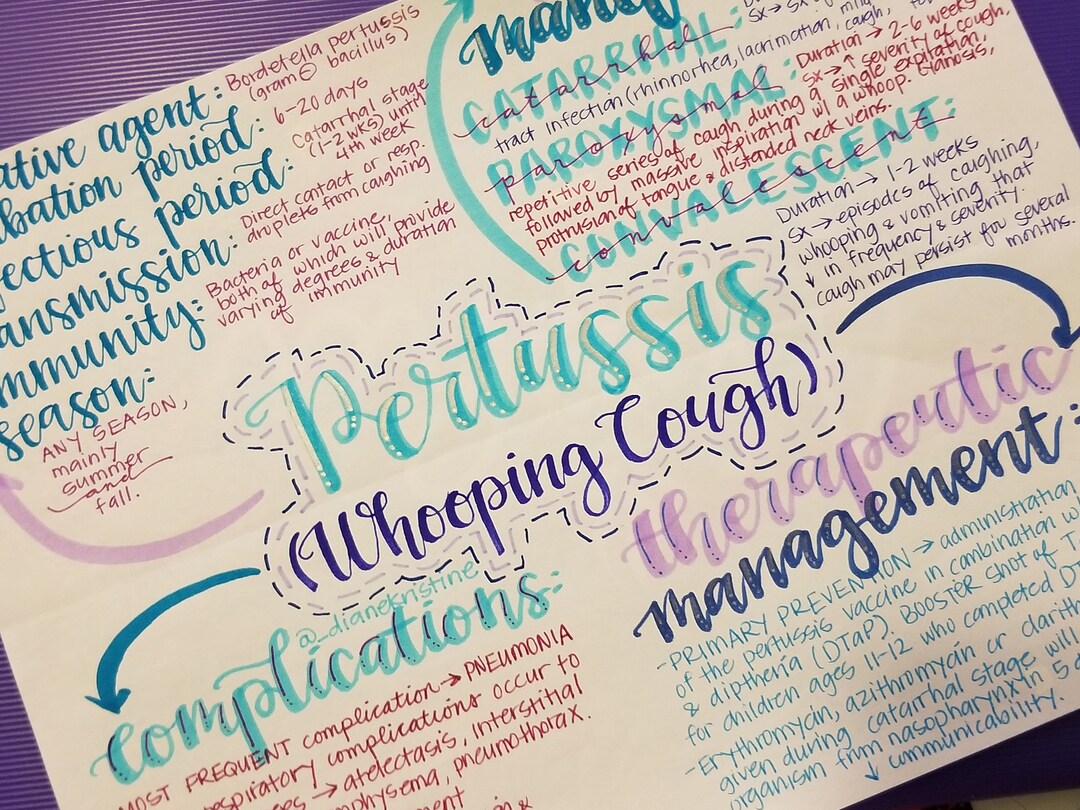 ative agent: Bordetella pertussis
(gram ⊖ bacillus)
bation period: 6-20 days
ectious period: Catarrhal stage
(1-2 wks) until
4th week
ansmission: Direct contact or resp.
droplets from caughing
mmunity: Bacteria or vaccine,
both of which will provide
varying degrees & duration
of immunity
season:
ANY SEASON,
mainly
summer
and
fall.
CATARRHAL:
catarrhal
tract infection (rhinnorhea, lacrimation, mild cough,
PAROXYSMAL:
paroxysmal
Duration → 2-6 weeks
sx → ↑ severity of cough,
repetitive series of caugh during a single expiration,
followed by massive inspiration w/ a whoop. Cianosis,
protrusion of tongue & distended neck veins.
CONVALESCENT:
convalescent
Duration → 1-2 weeks
sx → episodes of caughing,
whooping & vomiting that
↓ in frequency & severity.
cough may persist for several
months.
Pertussis
(Whooping Cough)
@_dianekristine
complications:
MOST FREQUENT complication → PNEUMONIA
espiratory complications occur to
→ atelectasis, interstitial
physema, pneumothorax.
ment
therapeutic
management:
-PRIMARY PREVENTION → administration
of the pertussis vaccine in combination w
& diptheria (DTaP). BOOSTER shot of T
for children ages 11-12 who completed DT
-Erythromycin, azithromycin or clarith
given during catarrhal stage will
organism from nasopharynx in 5 d
↓ communicability.